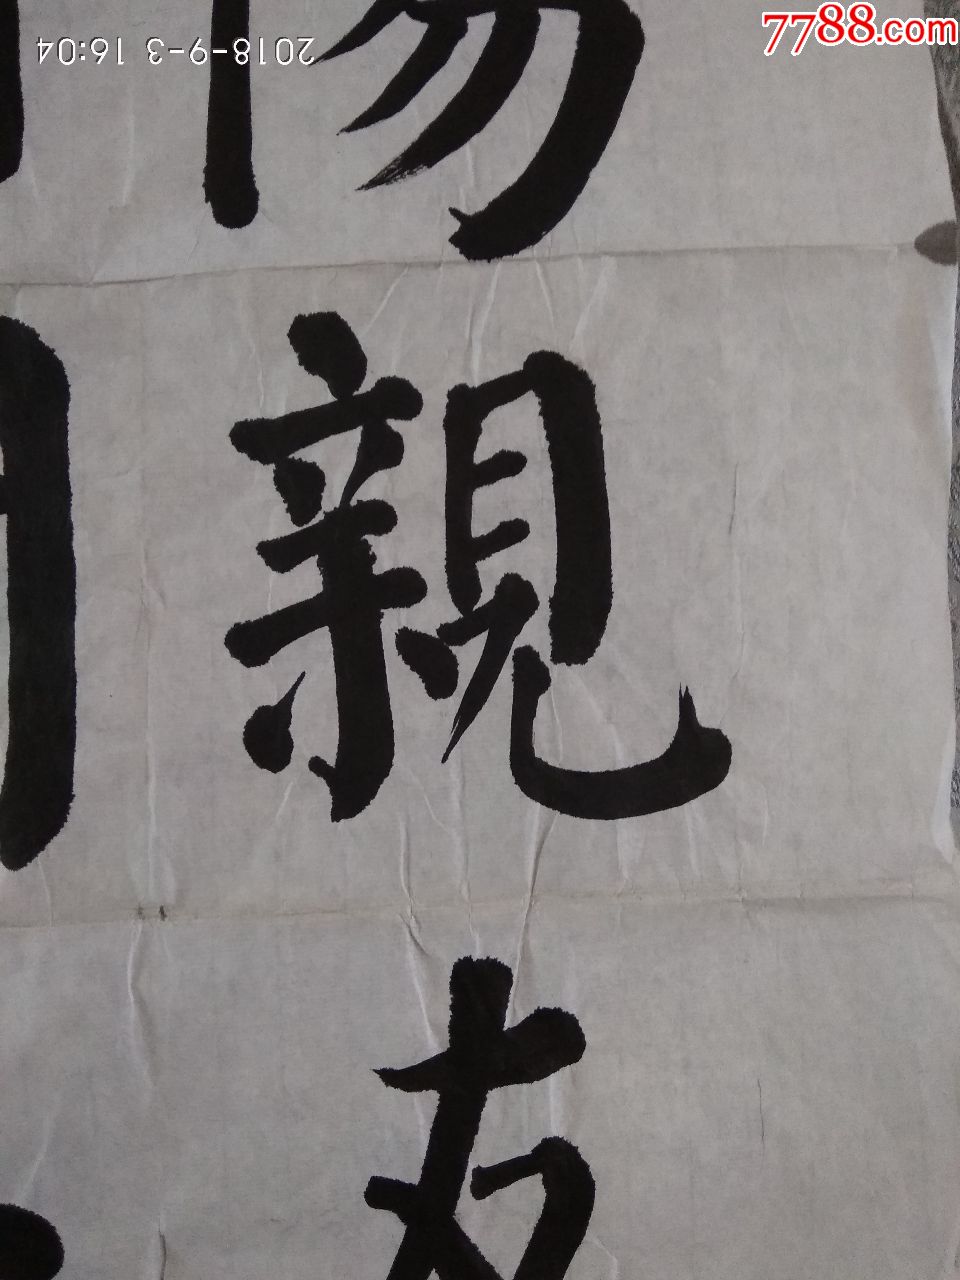 7788.com
2018-9-3 16:04
陽
親
友